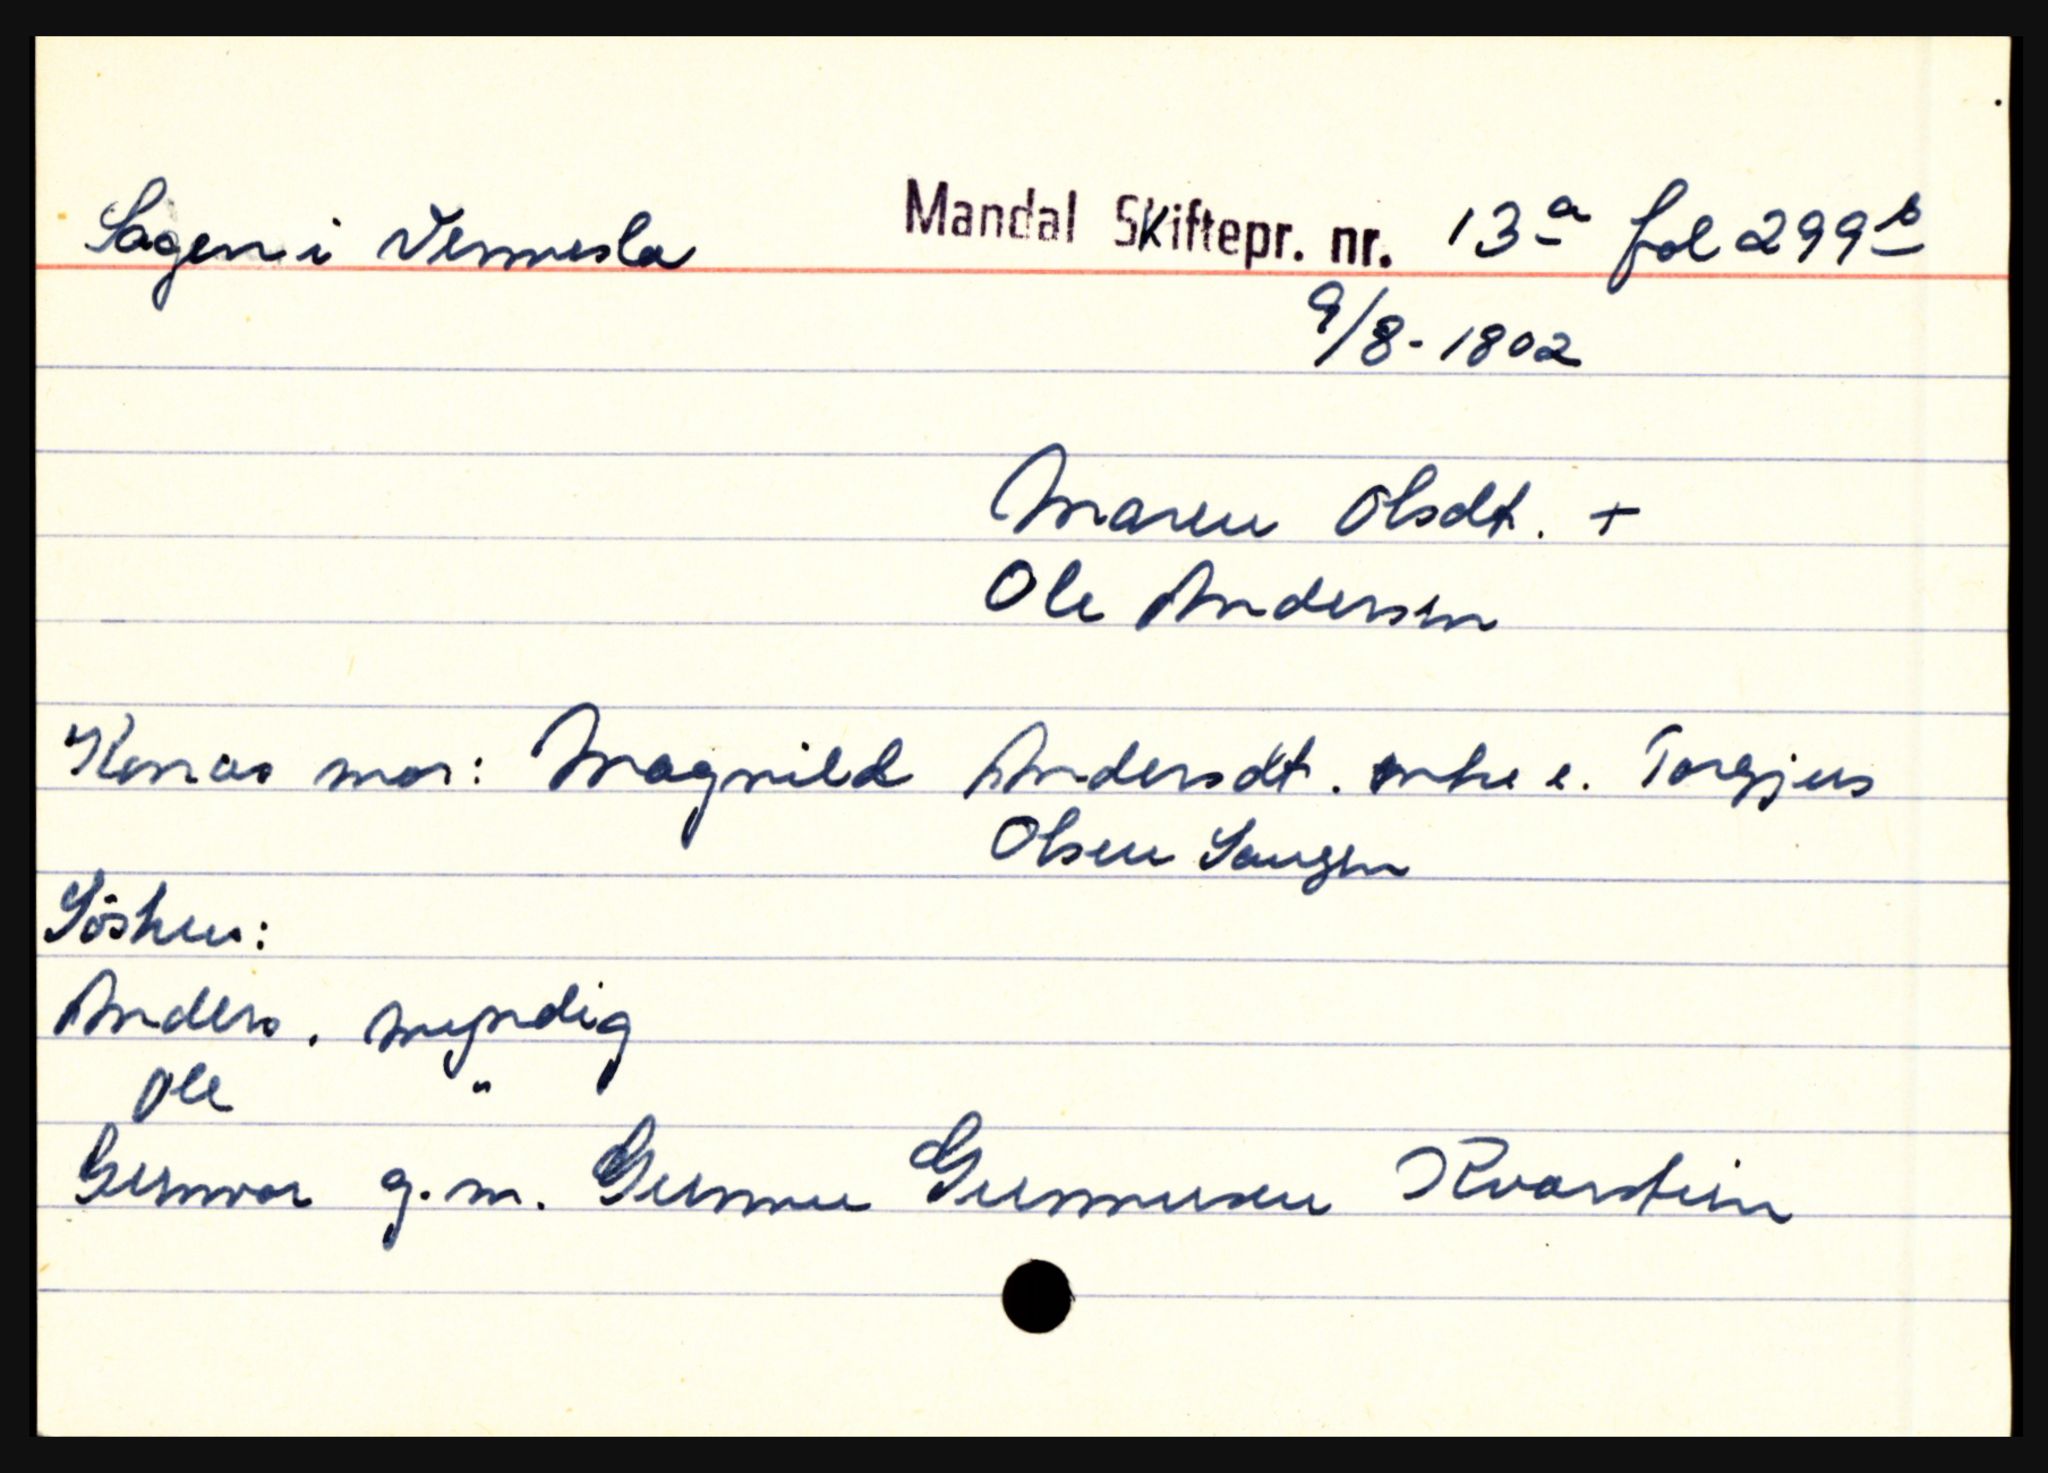 Sagen i Vennesla Mandal Skiftepr. nr. 13a fol 299b
9/8-1802
Maren Olsdt. +
Ole Andersen
Konas mor: Magnild Andersdt. enke e. Torgjus
Olsen Saugen
Sösken:
Anders. myndig
Ole "
Gunvor g.m. Gunnu Gunnusen Kvarstein